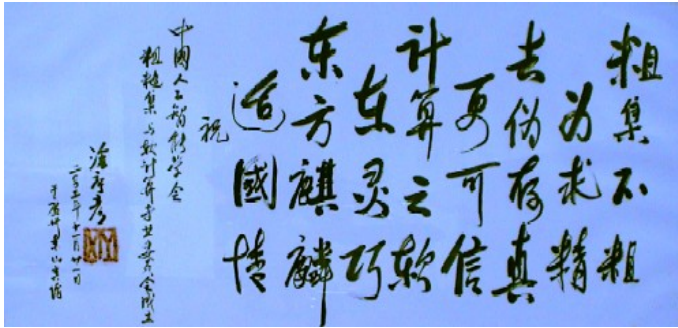 粗集不粗
为求精
去伪存真
更可信
计算之软
在灵巧
东方麒麟
适國情
祝
中國人工智能学会
粗糙集与软计算专业委员会成立
涂序彦
年十一月廿一日